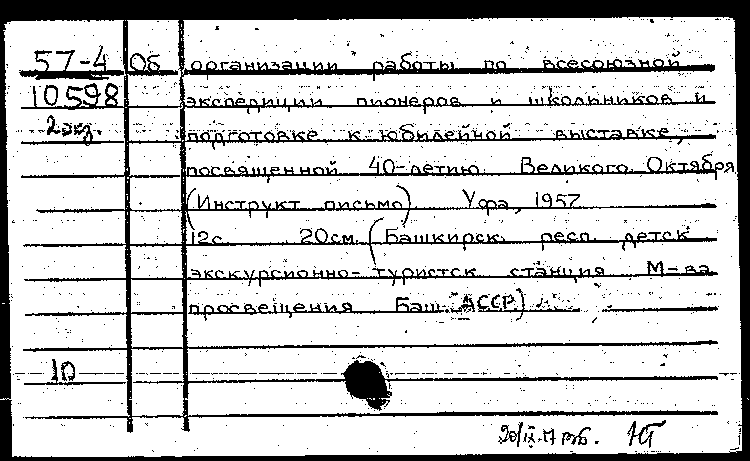 57-4 Об организации работы по всесоюзной
10598 экспедиции пионеров и школьников и
2 экз. подготовке к юбилейной выставке,
посвященной 40-летию Великого Октября
(Инструкт. письмо) Уфа, 1957
12с. 20см. (Башкирск. респ. детск.
экскурсионно-туристск. станция М-ва
просвещения Баш. АССР)
10